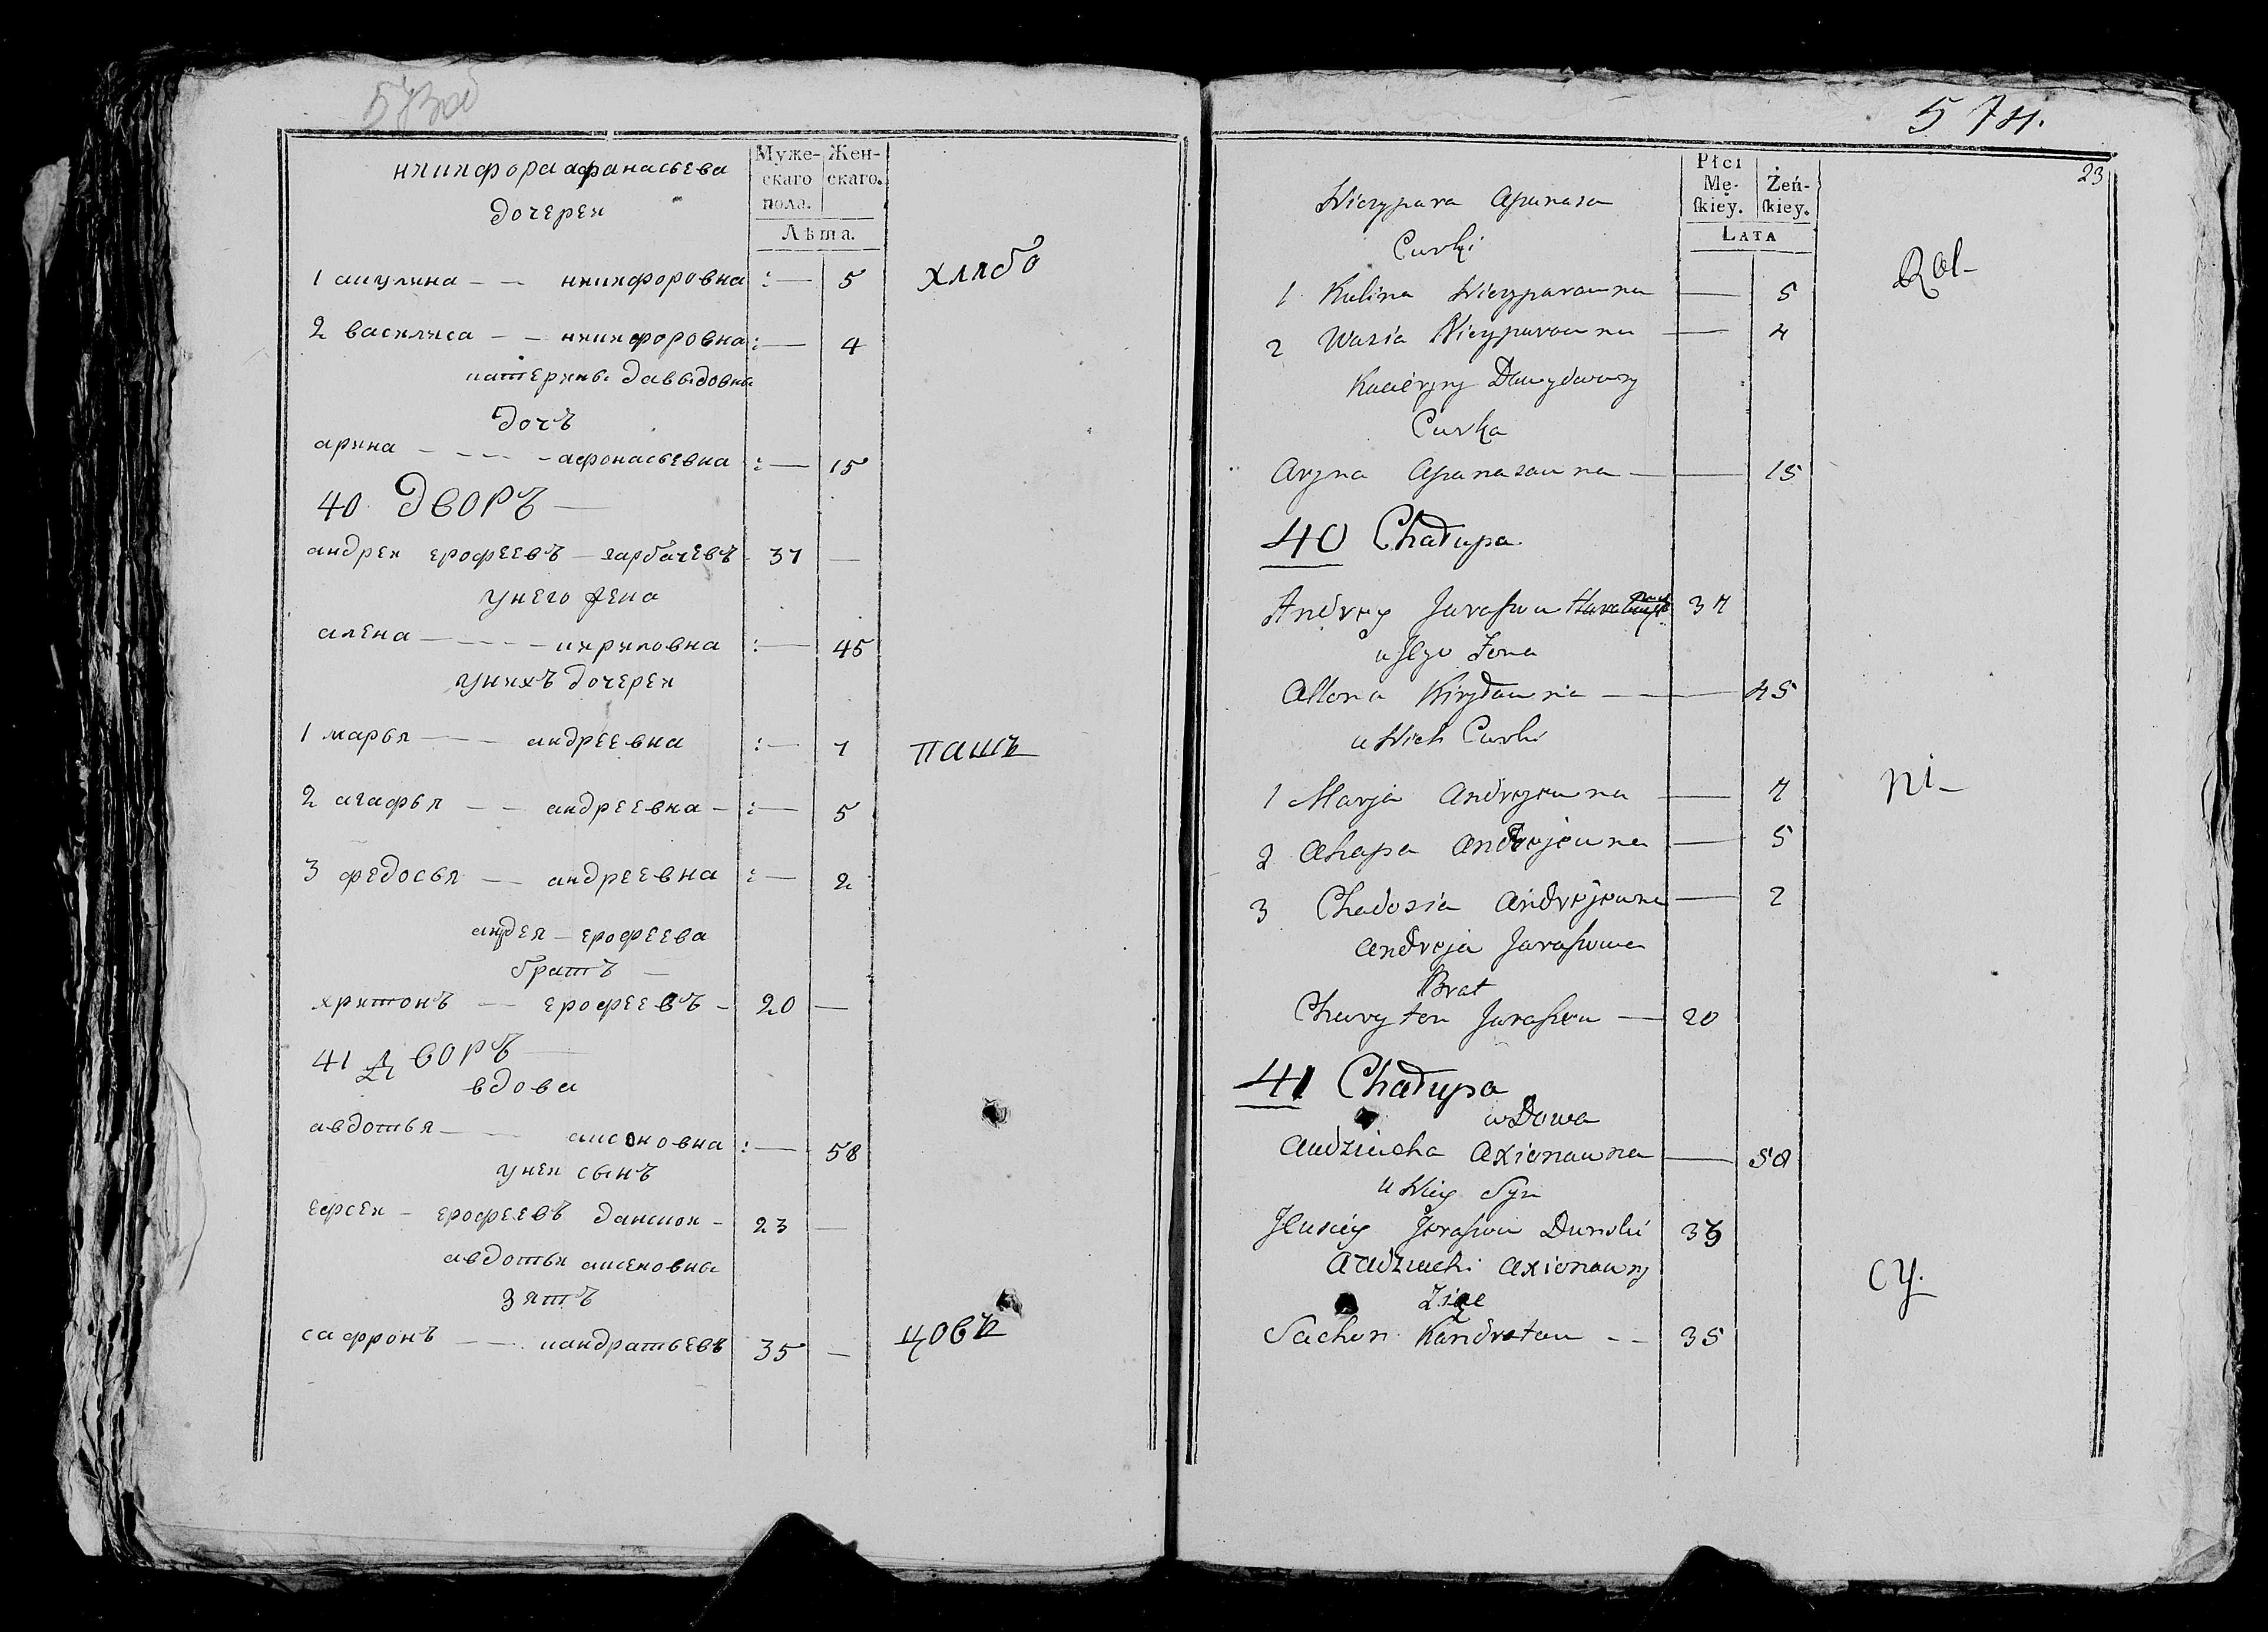 573об
никифора афанасьева
дочерей
Муже-
скаго
пола.
Жен-
скаго.
Лѣта.
1 акулина — — никифоровна :— 5
хлѣбо
2 василиса — — никифоровна :— 4
катерины давыдовны
дочъ
арина - - - - афонасьевна :— 15
40 ДВОРЪ —
андрей ерофеевъ — 37 —
унего жена
алена - - - - кириловна :— 45
унихъ дочерей
1 марья — — андреевна :— 7
пашъ
2 агафья — — андреевна - :— 5
3 федосья — — андреевна :— 2
андрея — ерофеева
братъ —
харитонъ — ерофеевъ - 20 —
41 ДВОРЪ —
вдова
авдотья — — аксоновна :— 58
уней сынъ
ерофеевъ - 23 —
авдотьи аксеновна
зятъ
сафронъ — — кандратьевъ 35 —
цовъ
574.
23
Płci
Mę-
ſkiey.
Żeń-
ſkiey.
LATA
Nieczypara Apanasa
Curki
Rol-
1 Kulina Nieczyparauna — 5
2 Wasia Nieczyparauna — 4
Kacieryny Dawydauny
Curka
Aryna Apanasauna — — 15
40 Chałupa.
Andrey Jarafieu 37
u Jego Żona
Allona Kiryłauna — — 45
u Nich Curki
1 Marja Andrejeuna — 7
ni-
2 Ahapa Andrejeuna — 5
3 Chadosia Andrejeuna — 2
Andreja Jarafiewa
Brat
Charyton Jarafieu — 20
41 Chałupa
wDowa
Audziucha Axionauna — 58
u Niey Syn
Jarafieu 33
Audziuchi Axionauny
cy.
Zięc
Sachon Kandratau - - 35